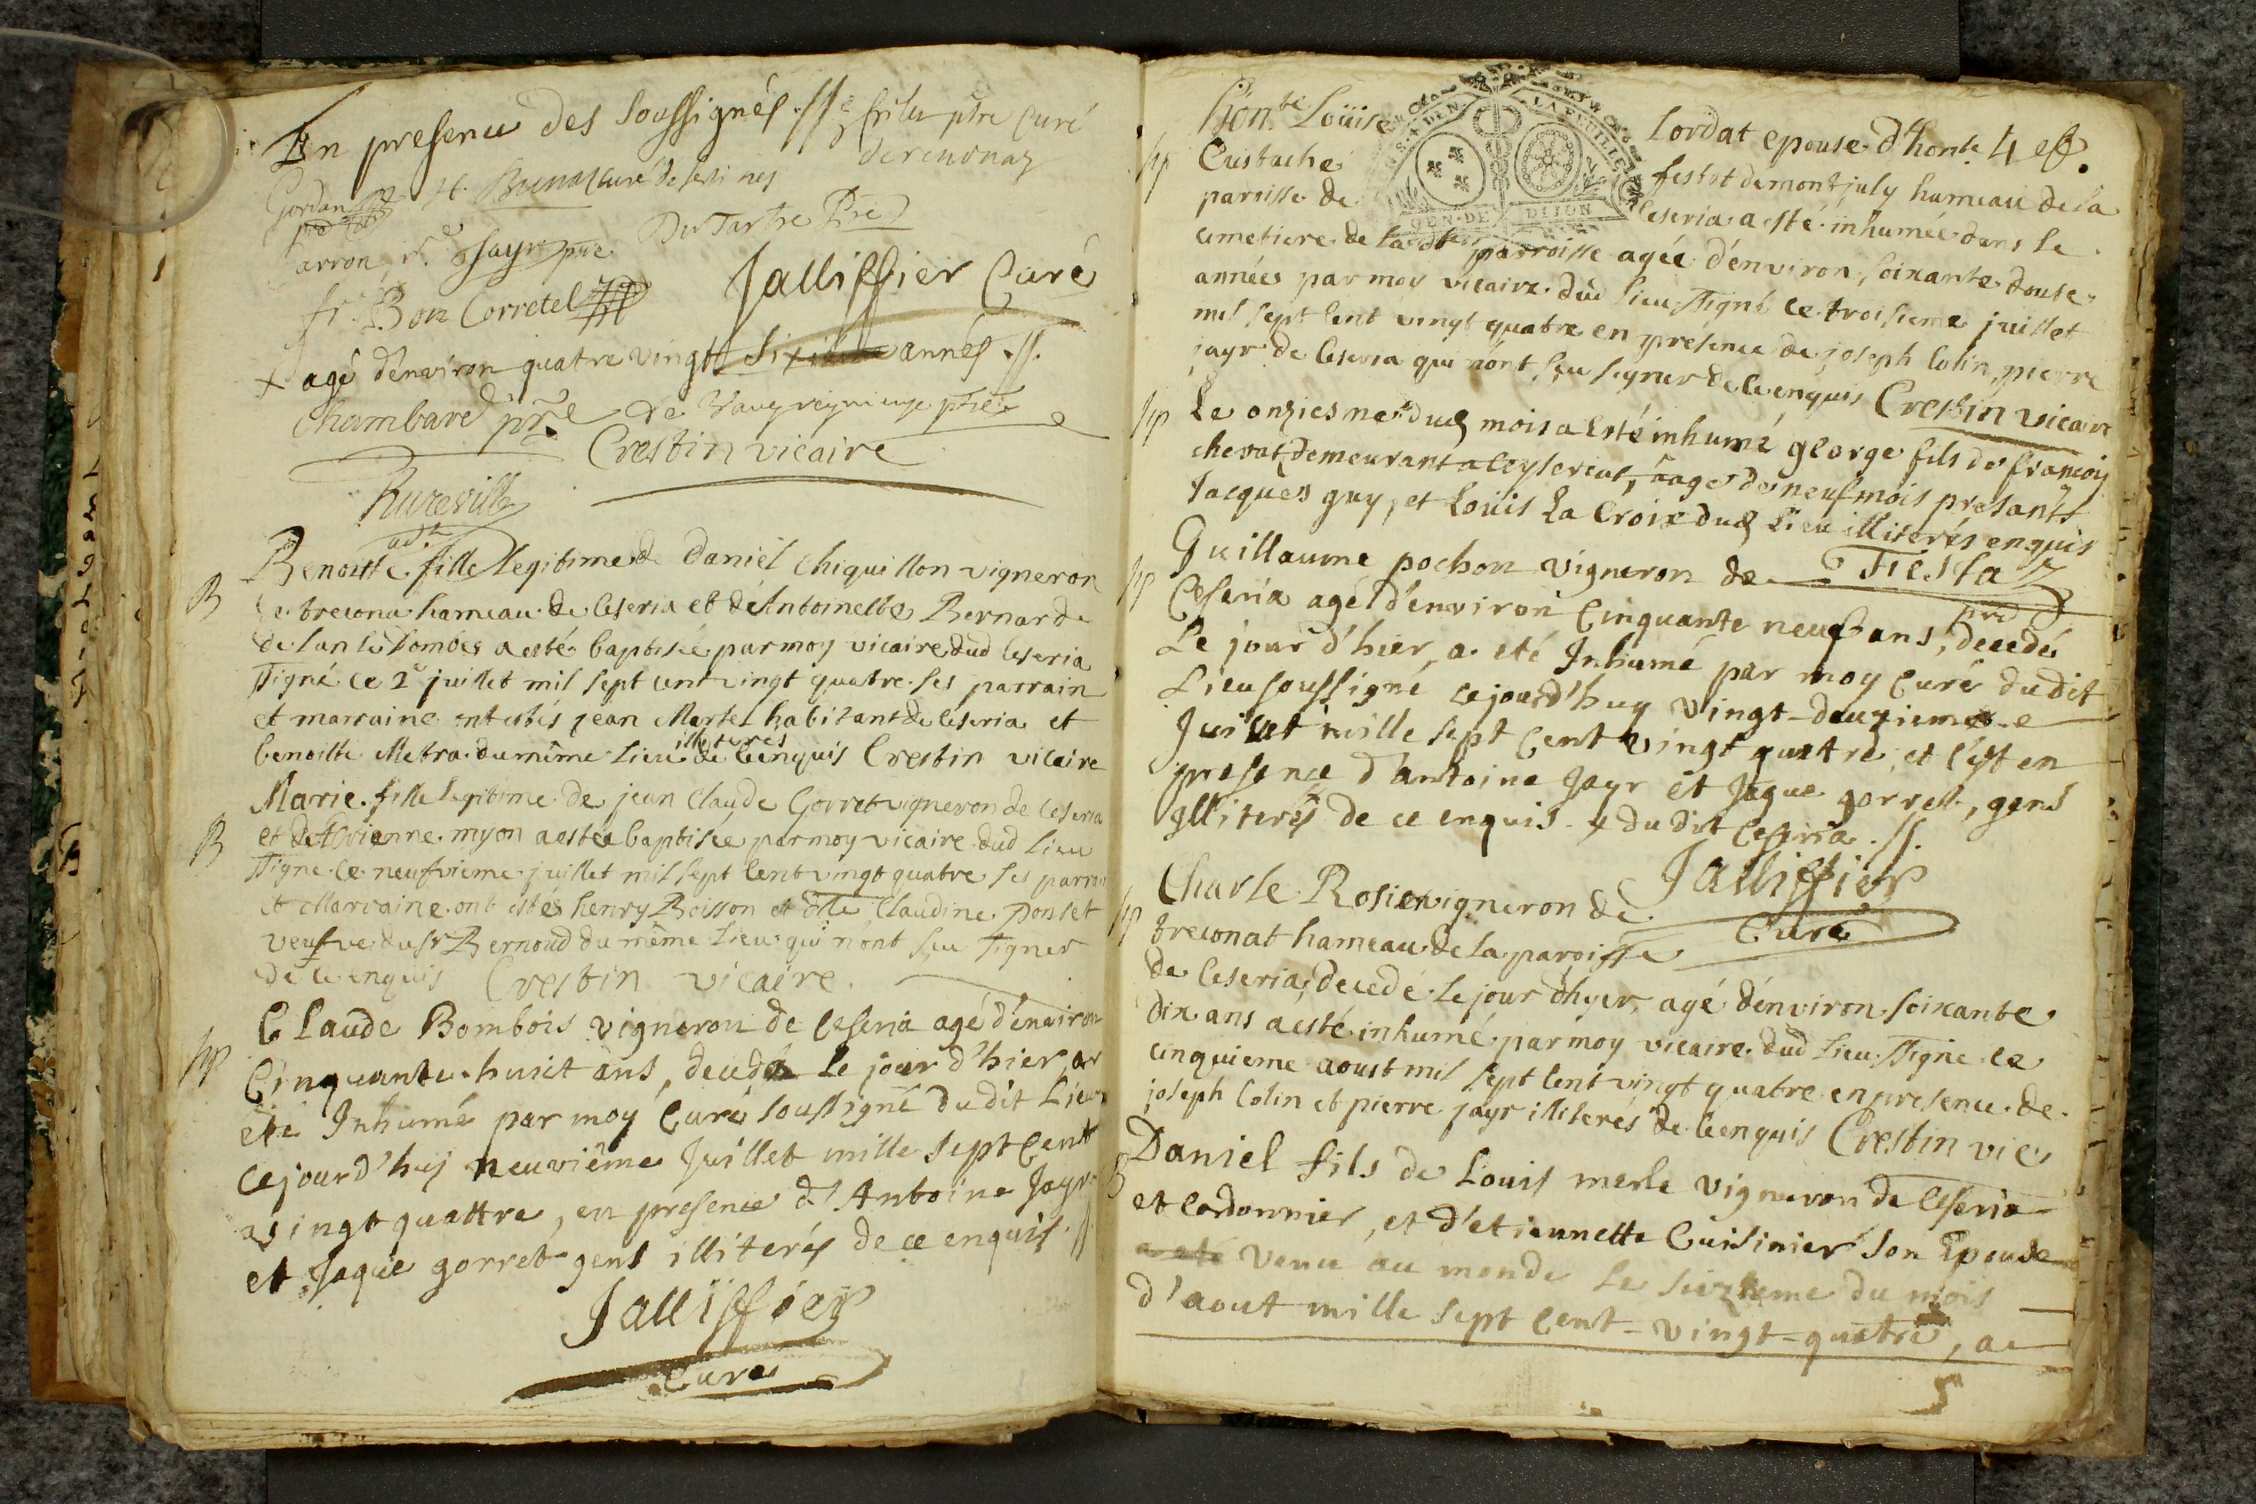 En presence des soussignés .//.
ptre curé
Gordan H. curé de
Du Tartre Pre
arron Jayr ptre
fr. Bon Corretel Jalliffier Curé
+ agé d'environ quatre vingt Sixieme années .//.
Chambard ptre de ptre
Crestin vicaire
Rureville
Benoitte fille legitime de Daniel Chiquillon vigneron
B de trecona hameau de Ceseria et de Antoinette Bernard
de a esté baptisée par moy vicaire dud Ceseria
signé ce 2e juillet mil sept cent vingt quatre ses parrain
et marraine ont estés jean Marte habitant de Ceseria et
illiterés
benoitte Metra du même Lieu de ce enquis Crestin vicaire
Marie fille legitime de jean Claude Gorret vigneron de Ceseria
B et de Myon a estée baptisée par moy vicaire dud Lieu
signé ce neufvieme juillet mil sept cent vingt quatre ses parrain
et Marraine ont estés henry Boisson et dlle Claudine Ponset
veufve du Sr Bernoud du même Lieu qui n'ont sçu signer
de ce enquis Crestin vicaire
Claude Bombois vigneron de Ceseria agé d'environ
Cinquante huict ans, decedé Le jour d'hier, a
été Inhumé par moy Curé soussigné du dit Lieu
Cejourd'huy neuviême Juillet mille sept Cent
vingt quattre, en presence d'Antoine Jayr
et Jaque gorret gens illiterés de ce enquis .//.
Jalliffier
Curé
honte Loüise Cordat epouse d'honte 4 e f.
Eustache festot de montjuly hameau de la
paroisse de Ceseria a esté inhumée dans le
cimetiere de lad parroisse agée d'environ soixante douse
années par moy vicaire dud Lieu signé ce troisieme juillet
mil sept cent vingt quatre en présence de joseph Colin, pierre
jayr de Ceseria qui n'ont sçu signer de ce enquis Crestin vicaire
Le onziesme dud mois a esté inhumé george fils de francois
chevat demeurant a Ceyseriat, aagé de neuf mois presants
Jacques guy, et Loüis La Croix dud Lieu illiterés enquis
Guillaume pochon vigneron de Fiesta
ptre
Ceseria agé d'environ Cinquante neuf ans, decedé
Le jour d'hier, a eté Inhumé par moy Curé du dit
Lieu soussigné cejourd'huy Vingt-deuxieme
Juillet mille sept Cent vingt quattre, et c'est en
presence d'antoine Jayr et Jaque gorret, gens
Illiterés de ce enquis + du dit Ceseria .//.
Jalliffier
Curé
Charle Rosier vigneron de
treconat hameau de la paroisse
de Ceseria, decedé le jour d'hyer, agé d'environ soixante
dix ans a esté inhumé par moy vicaire dud Lieu signé ce
cinquieme aoust mil sept cent vingt quatre en presence de
joseph Colin et pierre jayr illiterés de ce enquis Crestin vice
Daniel fils de Louis merle vigneron de Ceseria
et Cordonnier, et d'etiennette Cuisinier son Epouse
a eté venu au monde le sixieme du mois
d'aout mille sept cent-vingt-quatre, a